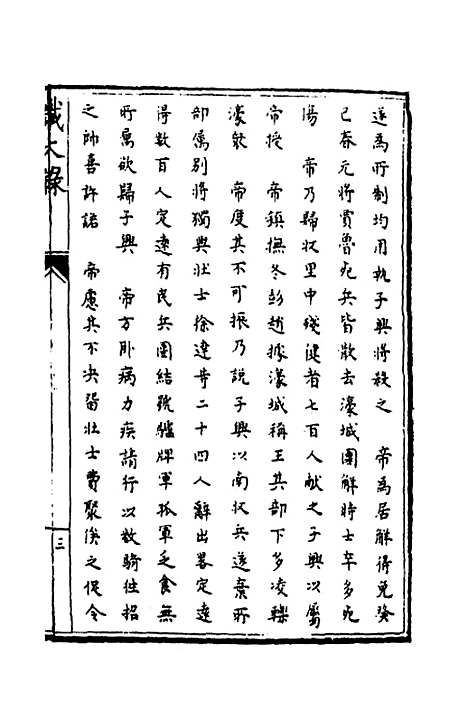 遂為所制均用執子興將殺之　帝為居解得免癸
巳春元將賈魯死兵皆散去濠城圍解時士卒多死
傷　帝乃歸收里中殘健者七百人献之子興以屬
帝授　帝鎮撫冬彭趙據濠城稱王其部下多凌轢
濠眾　帝度其不可振乃説子興以南收兵遂棄所
部屬别將獨與壯士徐達等二十四人辭出畧定遠
得數百人定遠有民兵團結號驢牌軍孤軍乏食無
所属欲歸子興　帝方卧病力疾請行以数騎往招
之帥喜許諾　帝慮其不决留壯士費聚俟之促令
識大錄
三